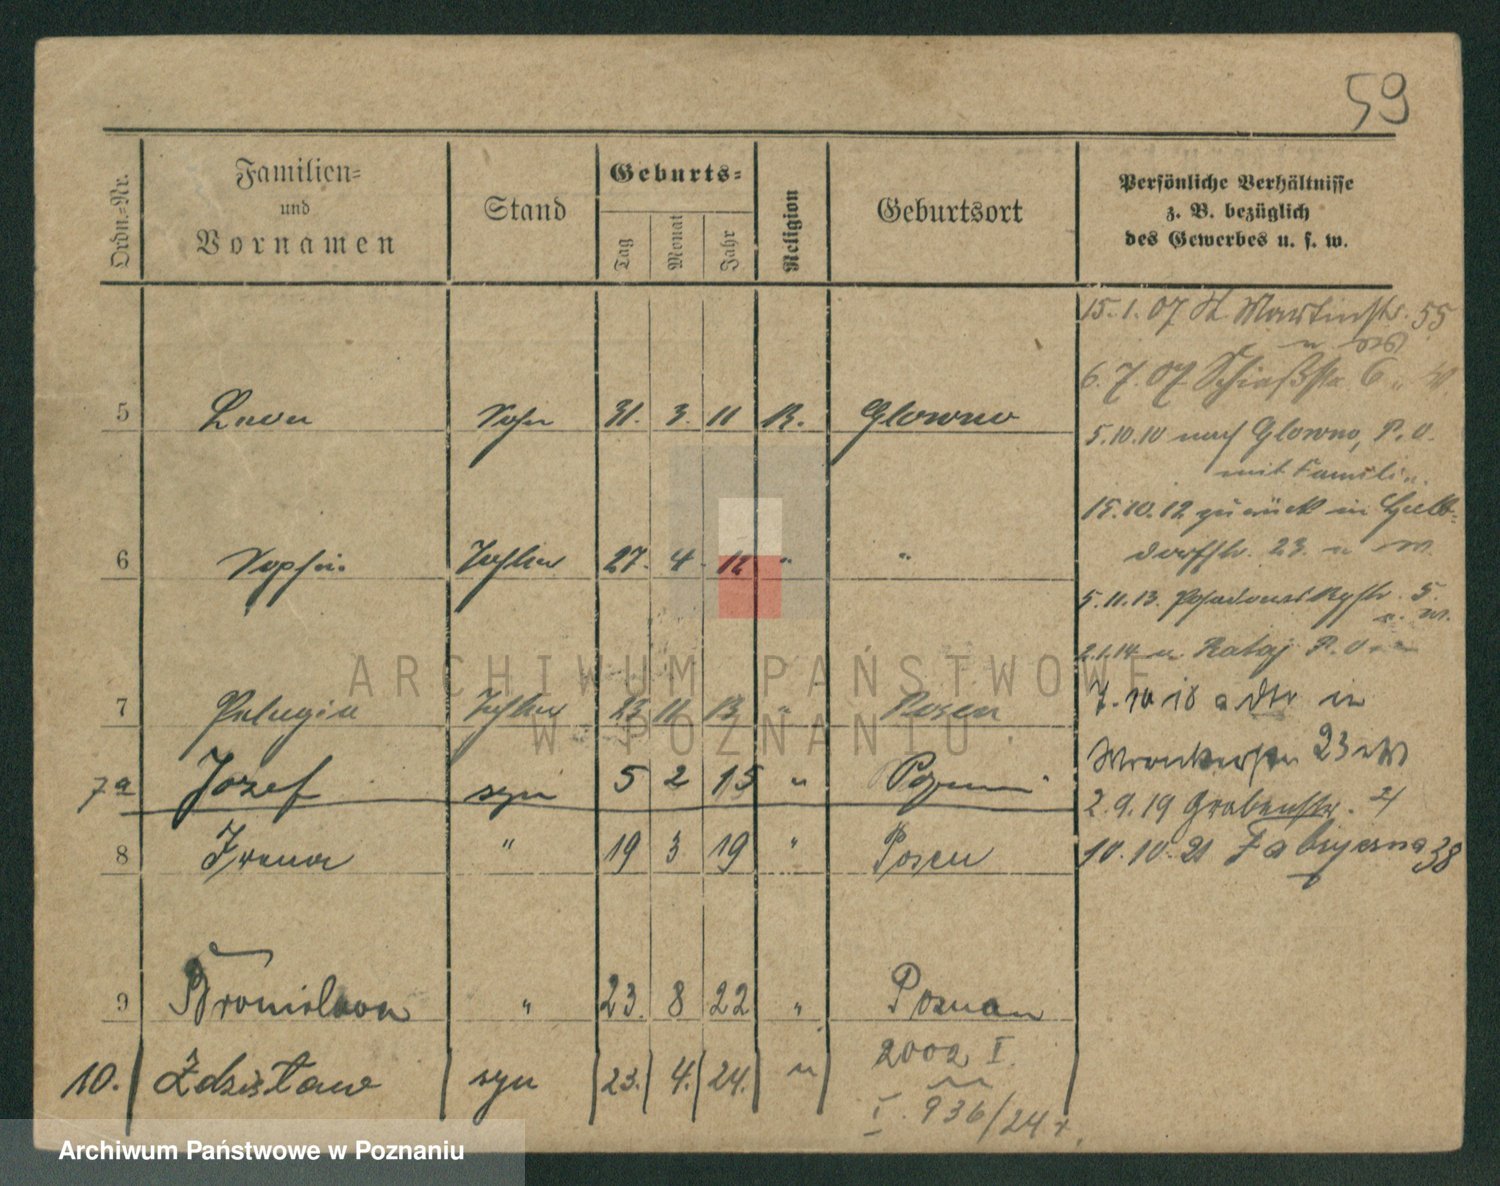 59
Ordn.=Nr.
Familien=
und
Vornamen
Stand
Geburts=
Tag
Monat
Jahr
Religion
Geburtsort
Persönliche Verhältnisse
z. B. bezüglich
des Gewerbes u. s. w.
15.1.07 St. Martinstr. 55
6.7.07 Schießstr. 6
5 31. 3. 11 Glowno
5.10.10 nach Glowno, P. O.
mit Famili
15.10.12 zurück in
dorfstr. 23.
6 Sophie Tochter 27. 4. 12 " "
5.11.13. Posadowskystr. 5.
2.1.14 Rataj P. O.
7 Pelagia Tochter 23 11 13 " Posen
7.10.18 in
23
7a Józef syn 5 2 15 "
2.9.19 Grabenstr.
8 Irena " 19 3 19 " Posen
10.10.21 Fabryczna 38
9 Bronislawa " 23. 8 22 " Poznan
2002 I.
10. Zdzisław syn 23. 4. 24. "
I. 936/24
ARCHIWUM PAŃSTWOWE
W POZNANIU
Archiwum Państwowe w Poznaniu